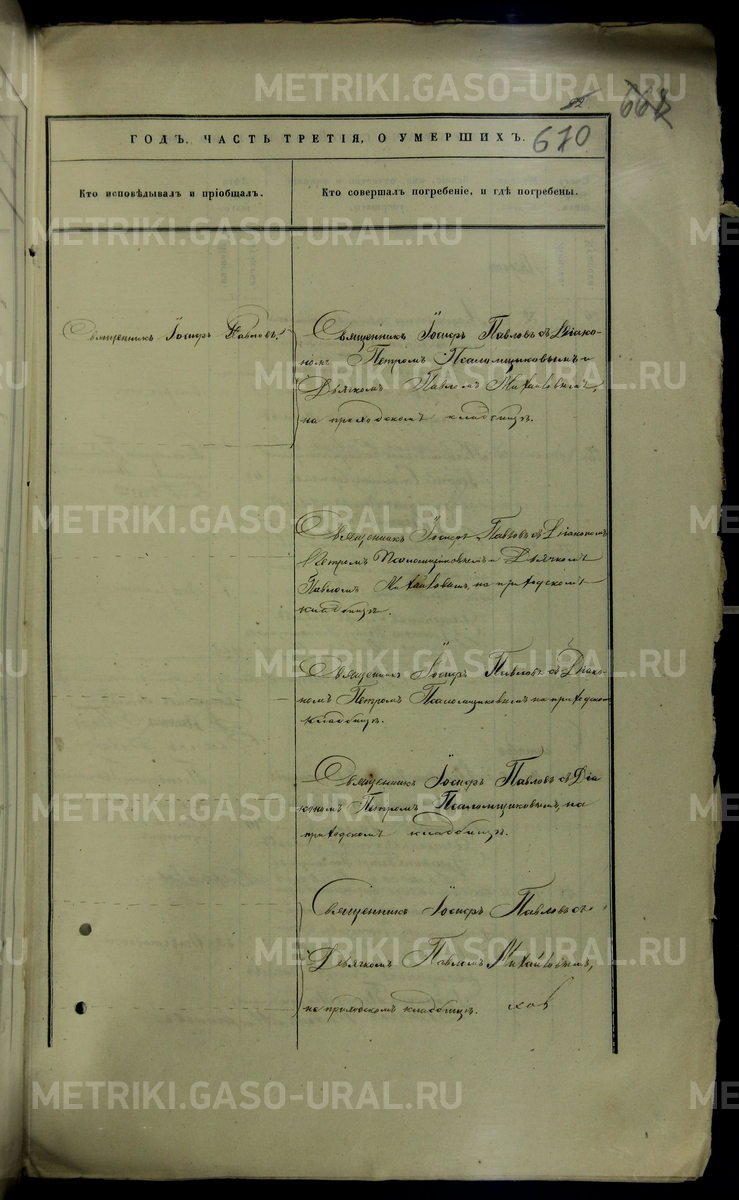 92
668
670
ГОДЪ, ЧАСТЬ ТРЕТІЯ, О УМЕРШИХЪ.
Кто исповѣдывалъ и пріобщалъ.
Кто совершалъ погребеніе, и гдѣ погребены.
Священникъ Іосифъ Павловъ.
Священникъ Іосифъ Павловъ съ Діако-
номъ Петромъ Псаломщиковымъ и
Дьячкомъ Павломъ Михайловымъ,
на приходскомъ кладбищѣ.
Священникъ Іосифъ Павловъ съ Діакономъ
Петромъ Псаломщиковымъ и Дьячкомъ
Павломъ Михайловымъ, на приходскомъ
кладбищѣ.
Священникъ Іосифъ Павловъ съ Діако-
номъ Петромъ Псаломщиковымъ на приходском
кладбищѣ.
Священникъ Іосифъ Павловъ съ Діа
кономъ Петромъ Псаломщиковымъ, на
приходскомъ кладбищѣ.
Священникъ Іосифъ Павловъ съ
Дьячкомъ Павломъ Михайловымъ,
на приходскомъ кладбищѣ.
METRIKI.GASO-URAL.RU